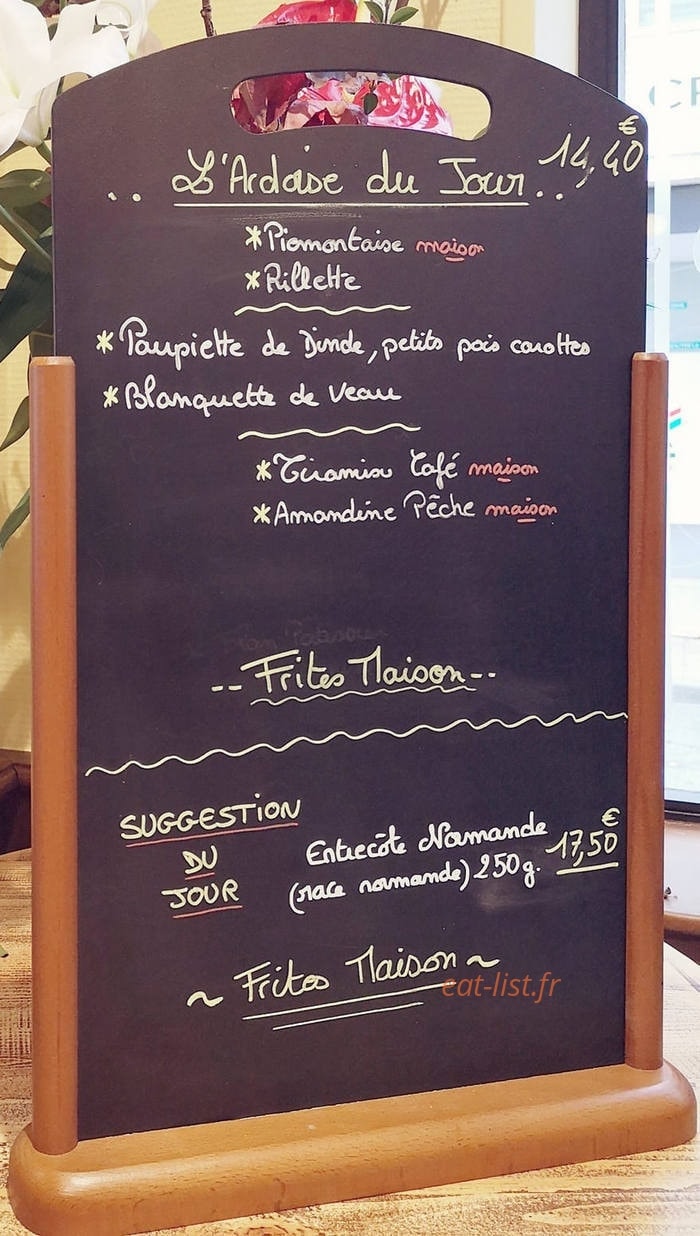 €
.. L'Ardoise du Jour .. 14,40
*Piemontaise maison
*Rillette
*Paupiette de Dinde, petits pois carottes
*Blanquette de Veau
*Tiramisu Café maison
*Amandine Pêche maison
--Frites Maison--
SUGGESTION
DU
JOUR
Entrecôte Normande
(race normande) 250g.
€
17,50
~ Frites Maison ~
eat-list.fr